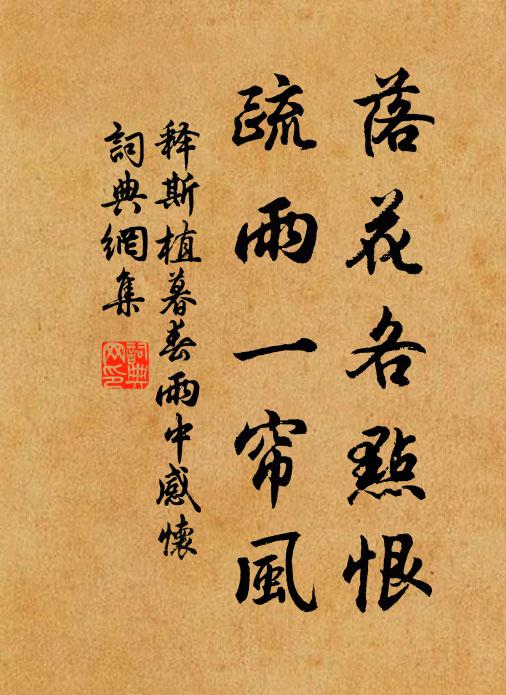 落花各點恨
疏雨一帘風
释斯植暮春雨中感懷
詞典網集
詞典
网印